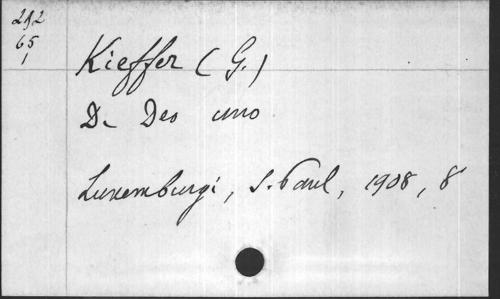 242
65
1
Kieffer (G.)
De Deo uno
Luxemburgi, S. Paul, 1908, 8